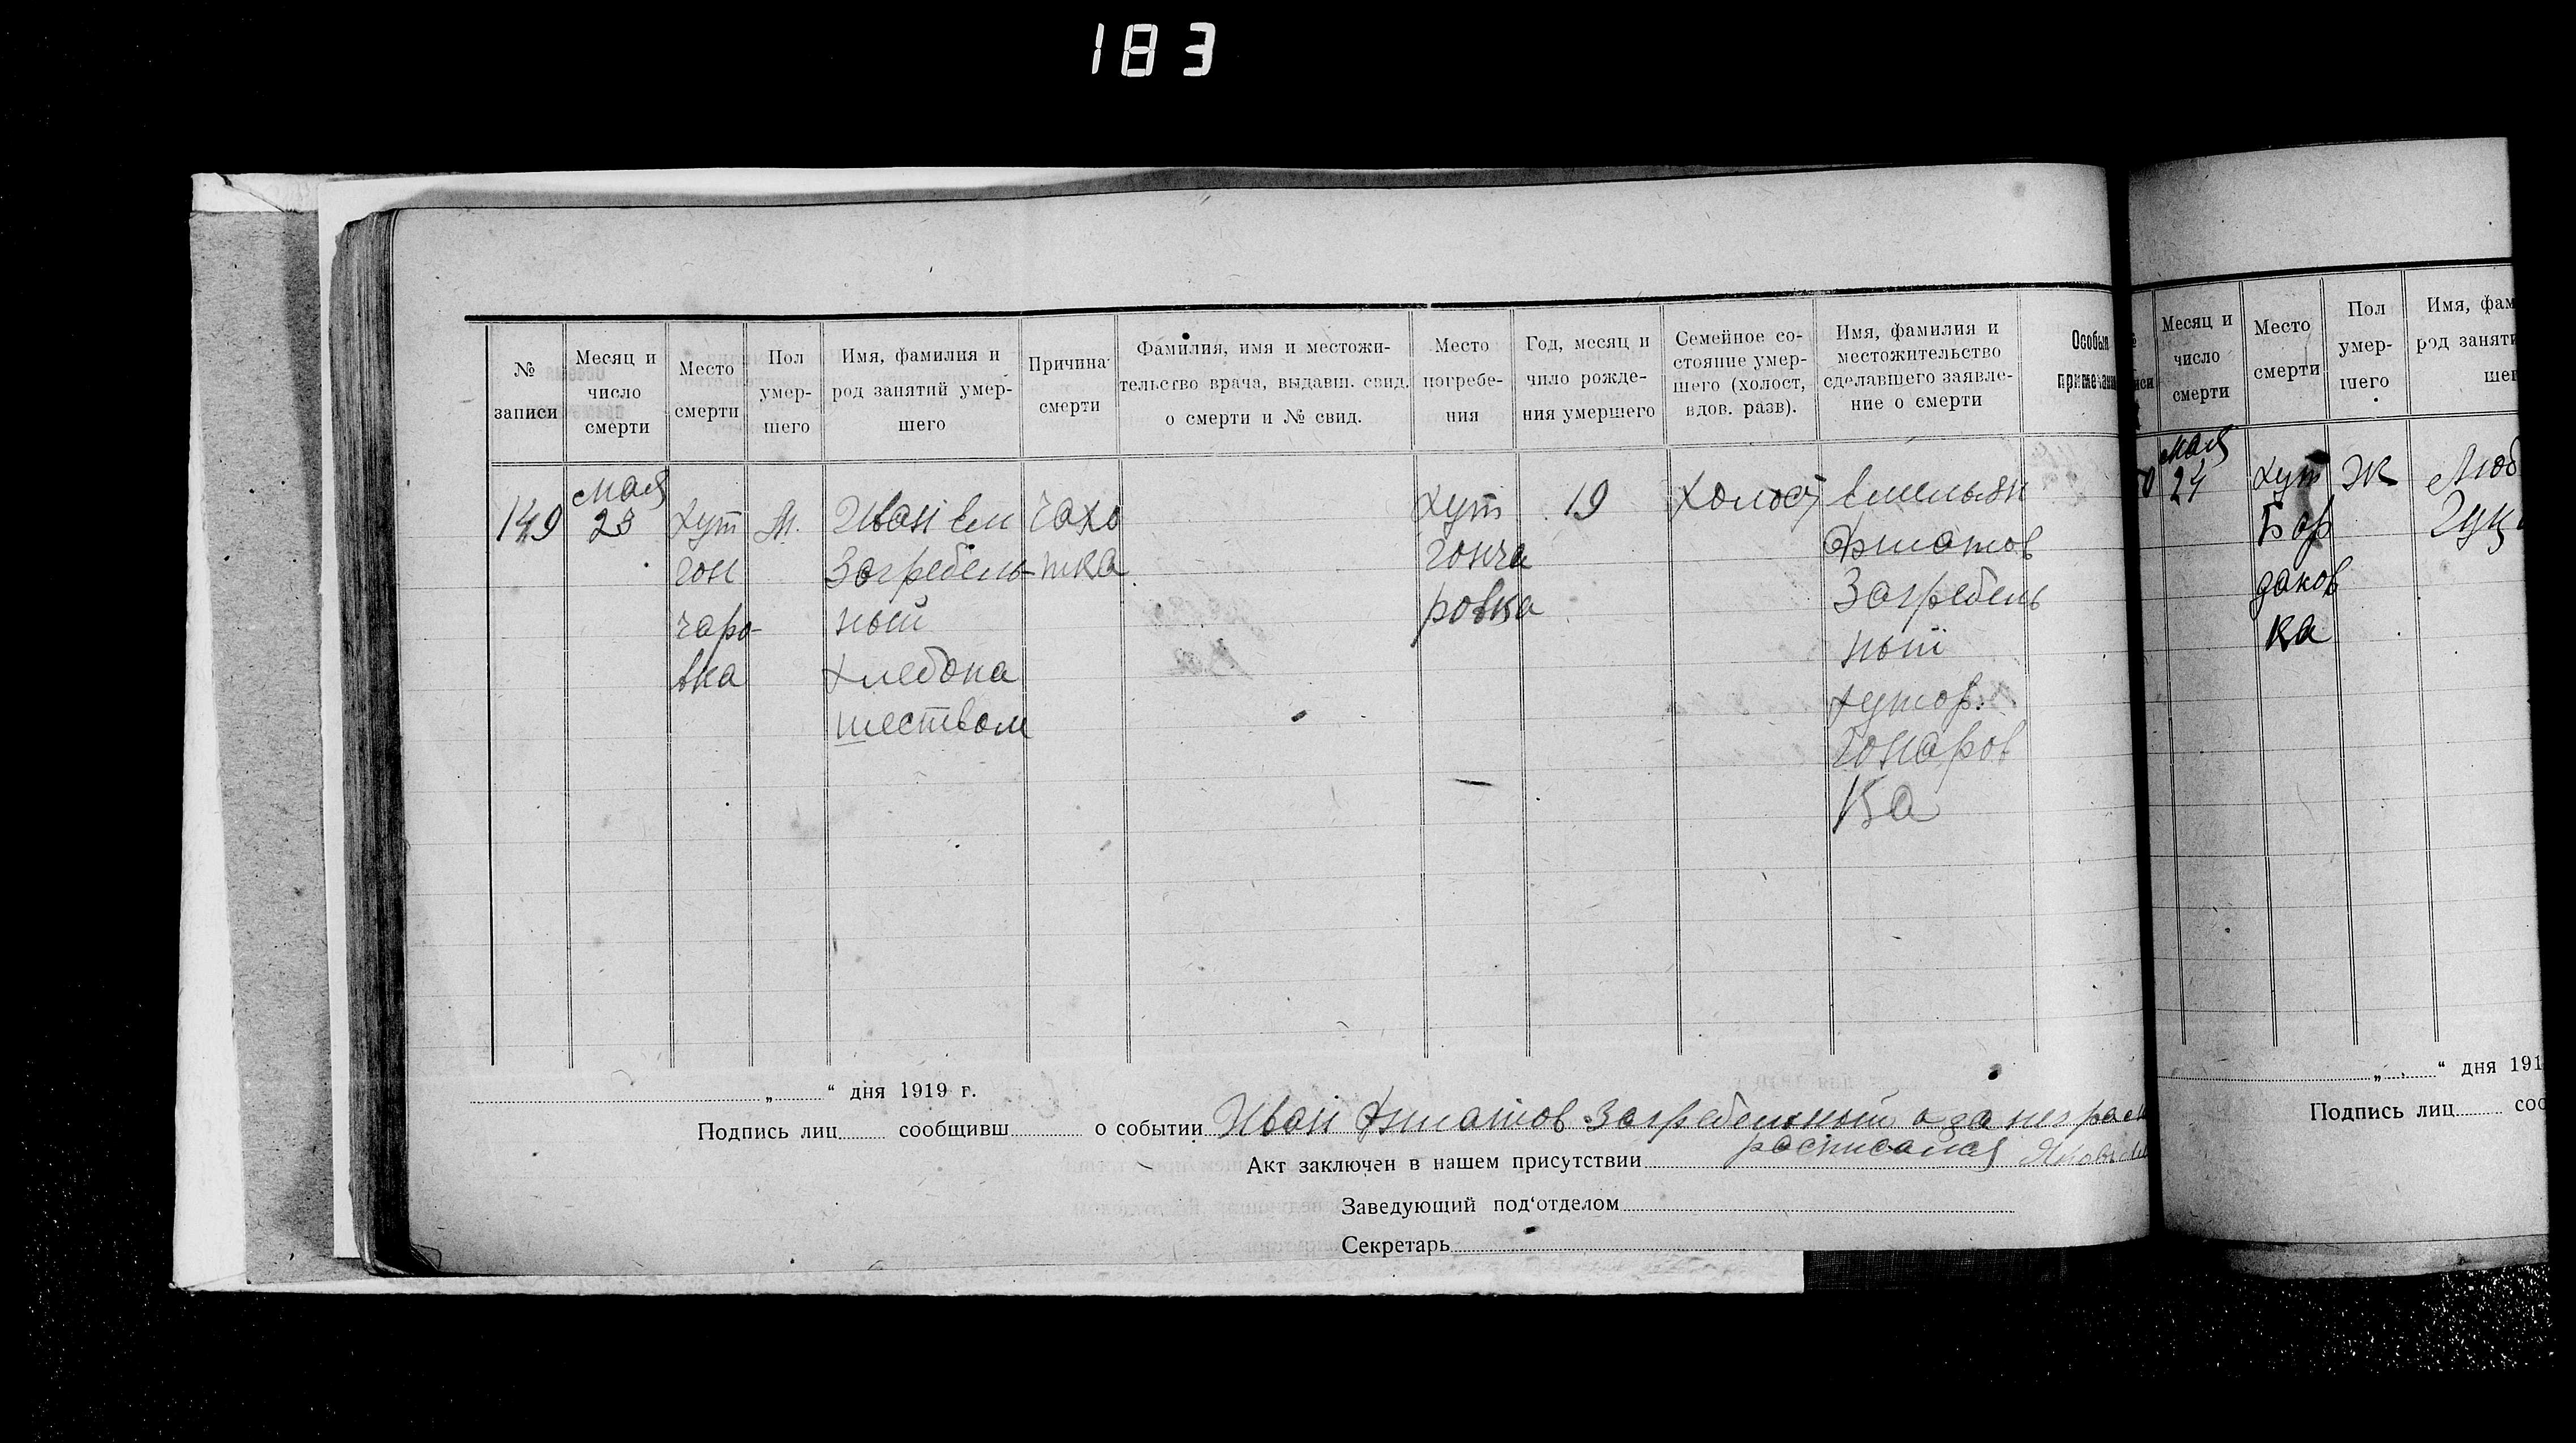 183
№ записи
Месяц и число смерти
Место смерти
Пол умер-
шего
Имя, фамилия и
род занятий умер-
шего
Причина
смерти
Фамилия, имя и местожи-
тельство врача, выдавш. свид.
о смерти и № свид.
Место
погребе-
ния
Год, месяц и
чило рожде-
ния умершего
Семейное со-
стояние умер-
шего (холост,
вдов. разв).
Имя, фамилия и
местожительство
сделавшего заявле-
ние о смерти
Особыя
примечани
149
мая
23
хут
гон
чаро-
вка
м.
Иван Ем
Загребель-
ный
хлебопа
шеством
чахо
тка
хут
гонча
ровка
19
холост
Емельян
Загребель
ный
хутор.
Гонаров
ка
„ “ дня 1919 г.
Подпись лиц сообщивш о событии Иван Загребельный а за нег
росписался
Акт заключен в нашем присутствии
Заведующий под‘отделом
Секретарь
Месяц и
число
смерти
Место
смерти
Пол
умер-
шего
Имя, фам
род заняти
шег
мая
24
хут
Бор
даков
ка
Ж
Люб
Гуц
„ “ дня 191
Подпись лиц соо